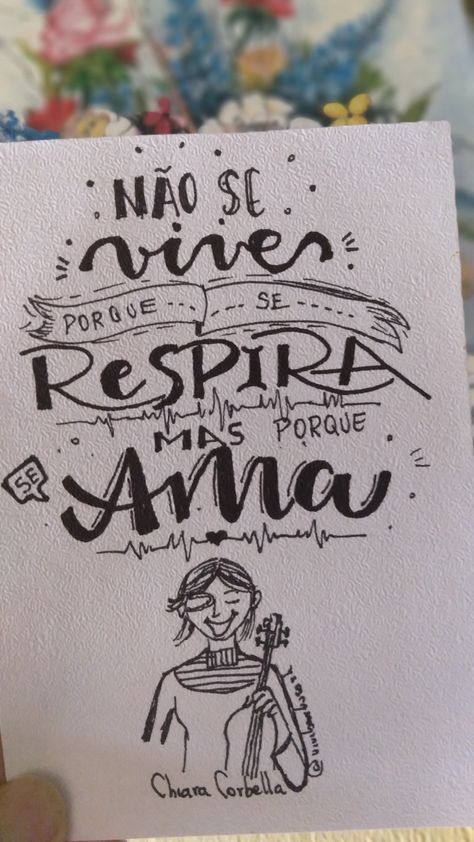 NÃO SE
vive
PORQUE SE
RESPIRA
MAS PORQUE
SE AMA
Chiara Corbella